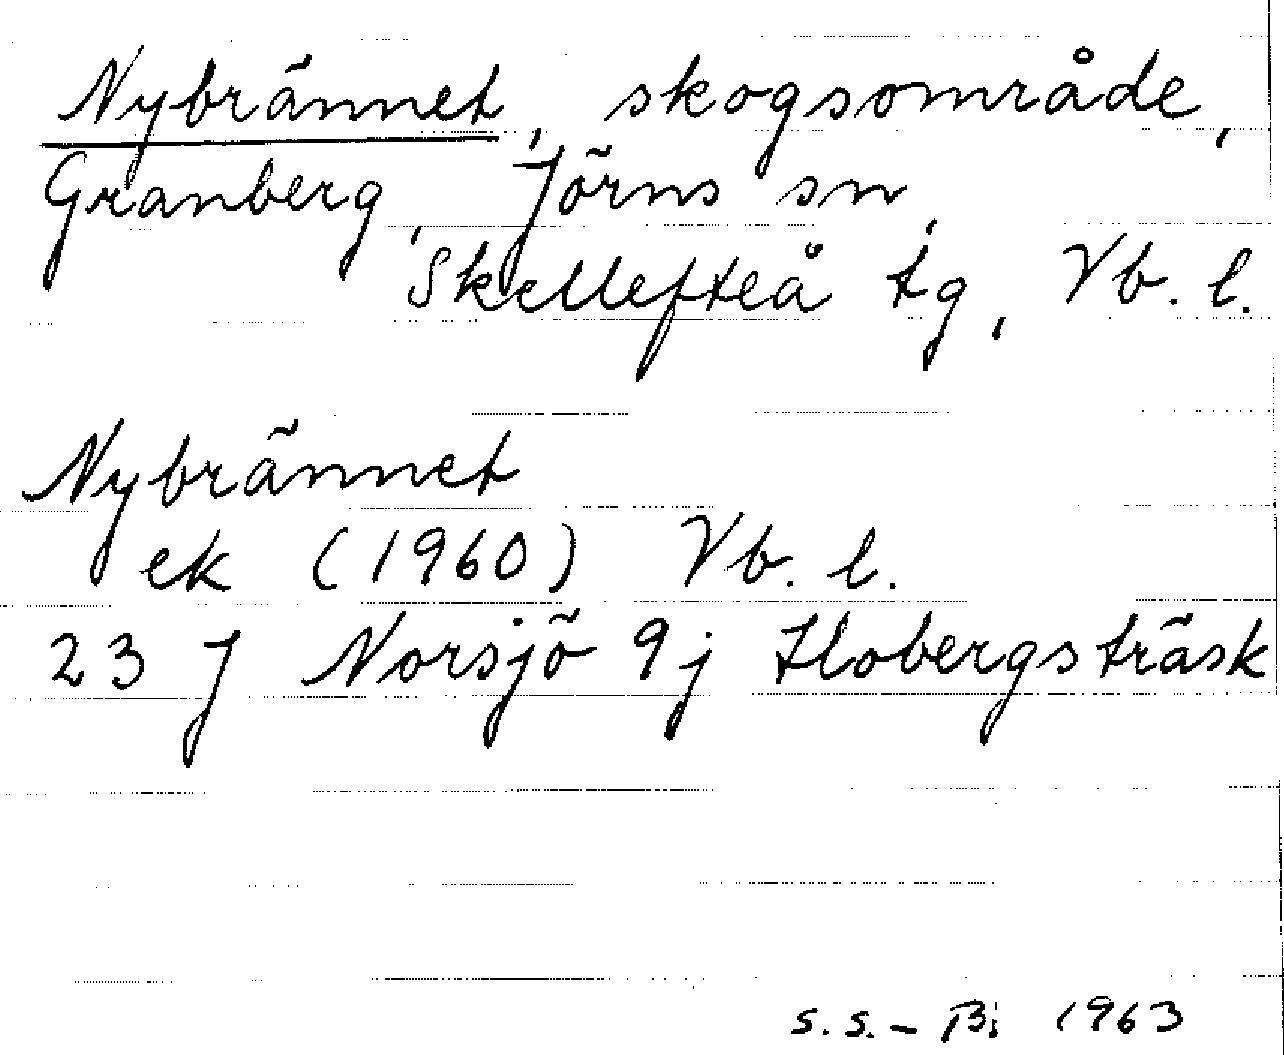 Nybrännet, skogsområde,
Granberg, Jörns sn,
Skellefteå tg, Vb. l.
Nybrännet
ek (1960) Vb. l.
23 J Norsjö 9j Hobergsträsk
s.s. - Bi 1963